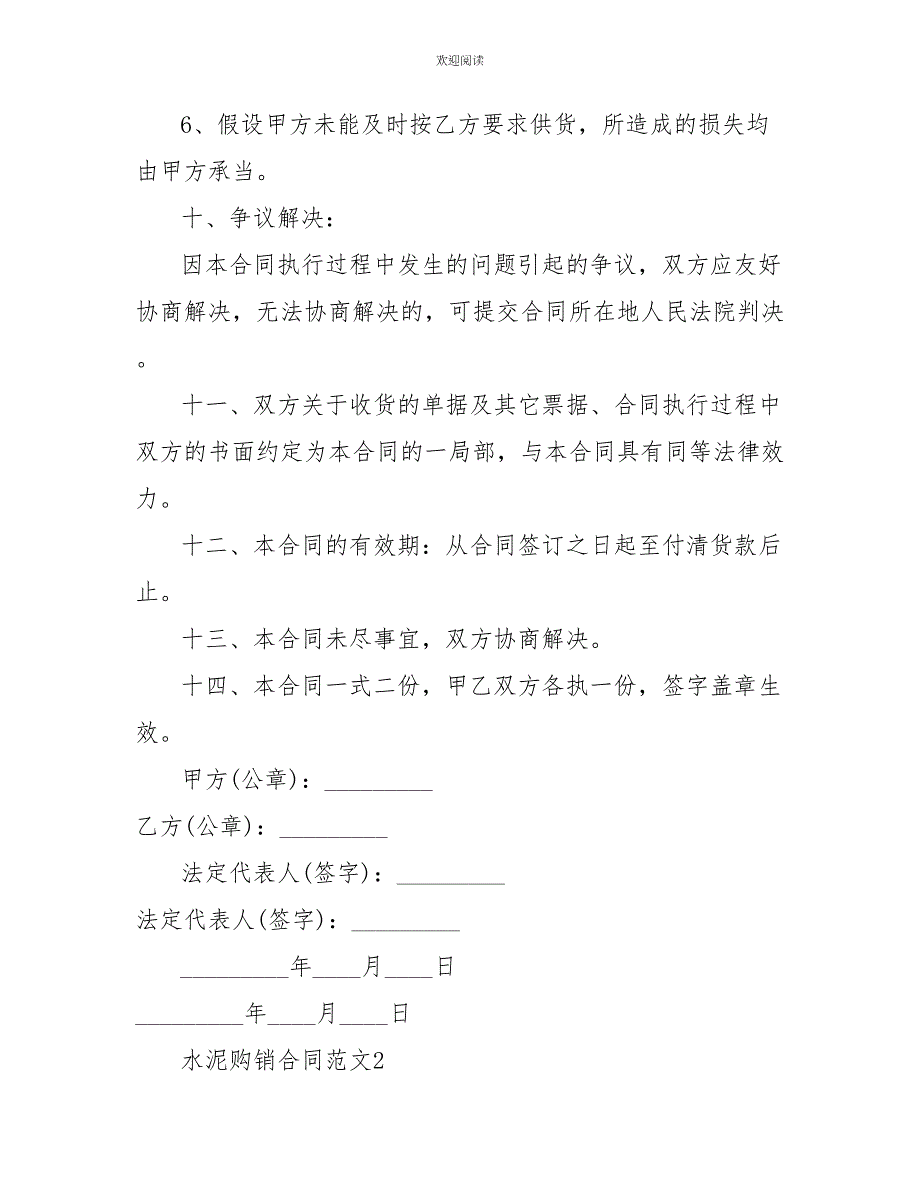 欢迎阅读
6、假设甲方未能及时按乙方要求供货，所造成的损失均
由甲方承当。
十、争议解决：
因本合同执行过程中发生的问题引起的争议，双方应友好
协商解决，无法协商解决的，可提交合同所在地人民法院判决
。
十一、双方关于收货的单据及其它票据、合同执行过程中
双方的书面约定为本合同的一局部，与本合同具有同等法律效
力。
十二、本合同的有效期：从合同签订之日起至付清货款后
止。
十三、本合同未尽事宜，双方协商解决。
十四、本合同一式二份，甲乙双方各执一份，签字盖章生
效。
甲方(公章)：_________
乙方(公章)：_________
法定代表人(签字)：_________
法定代表人(签字)：_________
_________年____月____日
_________年____月____日
水泥购销合同范文2